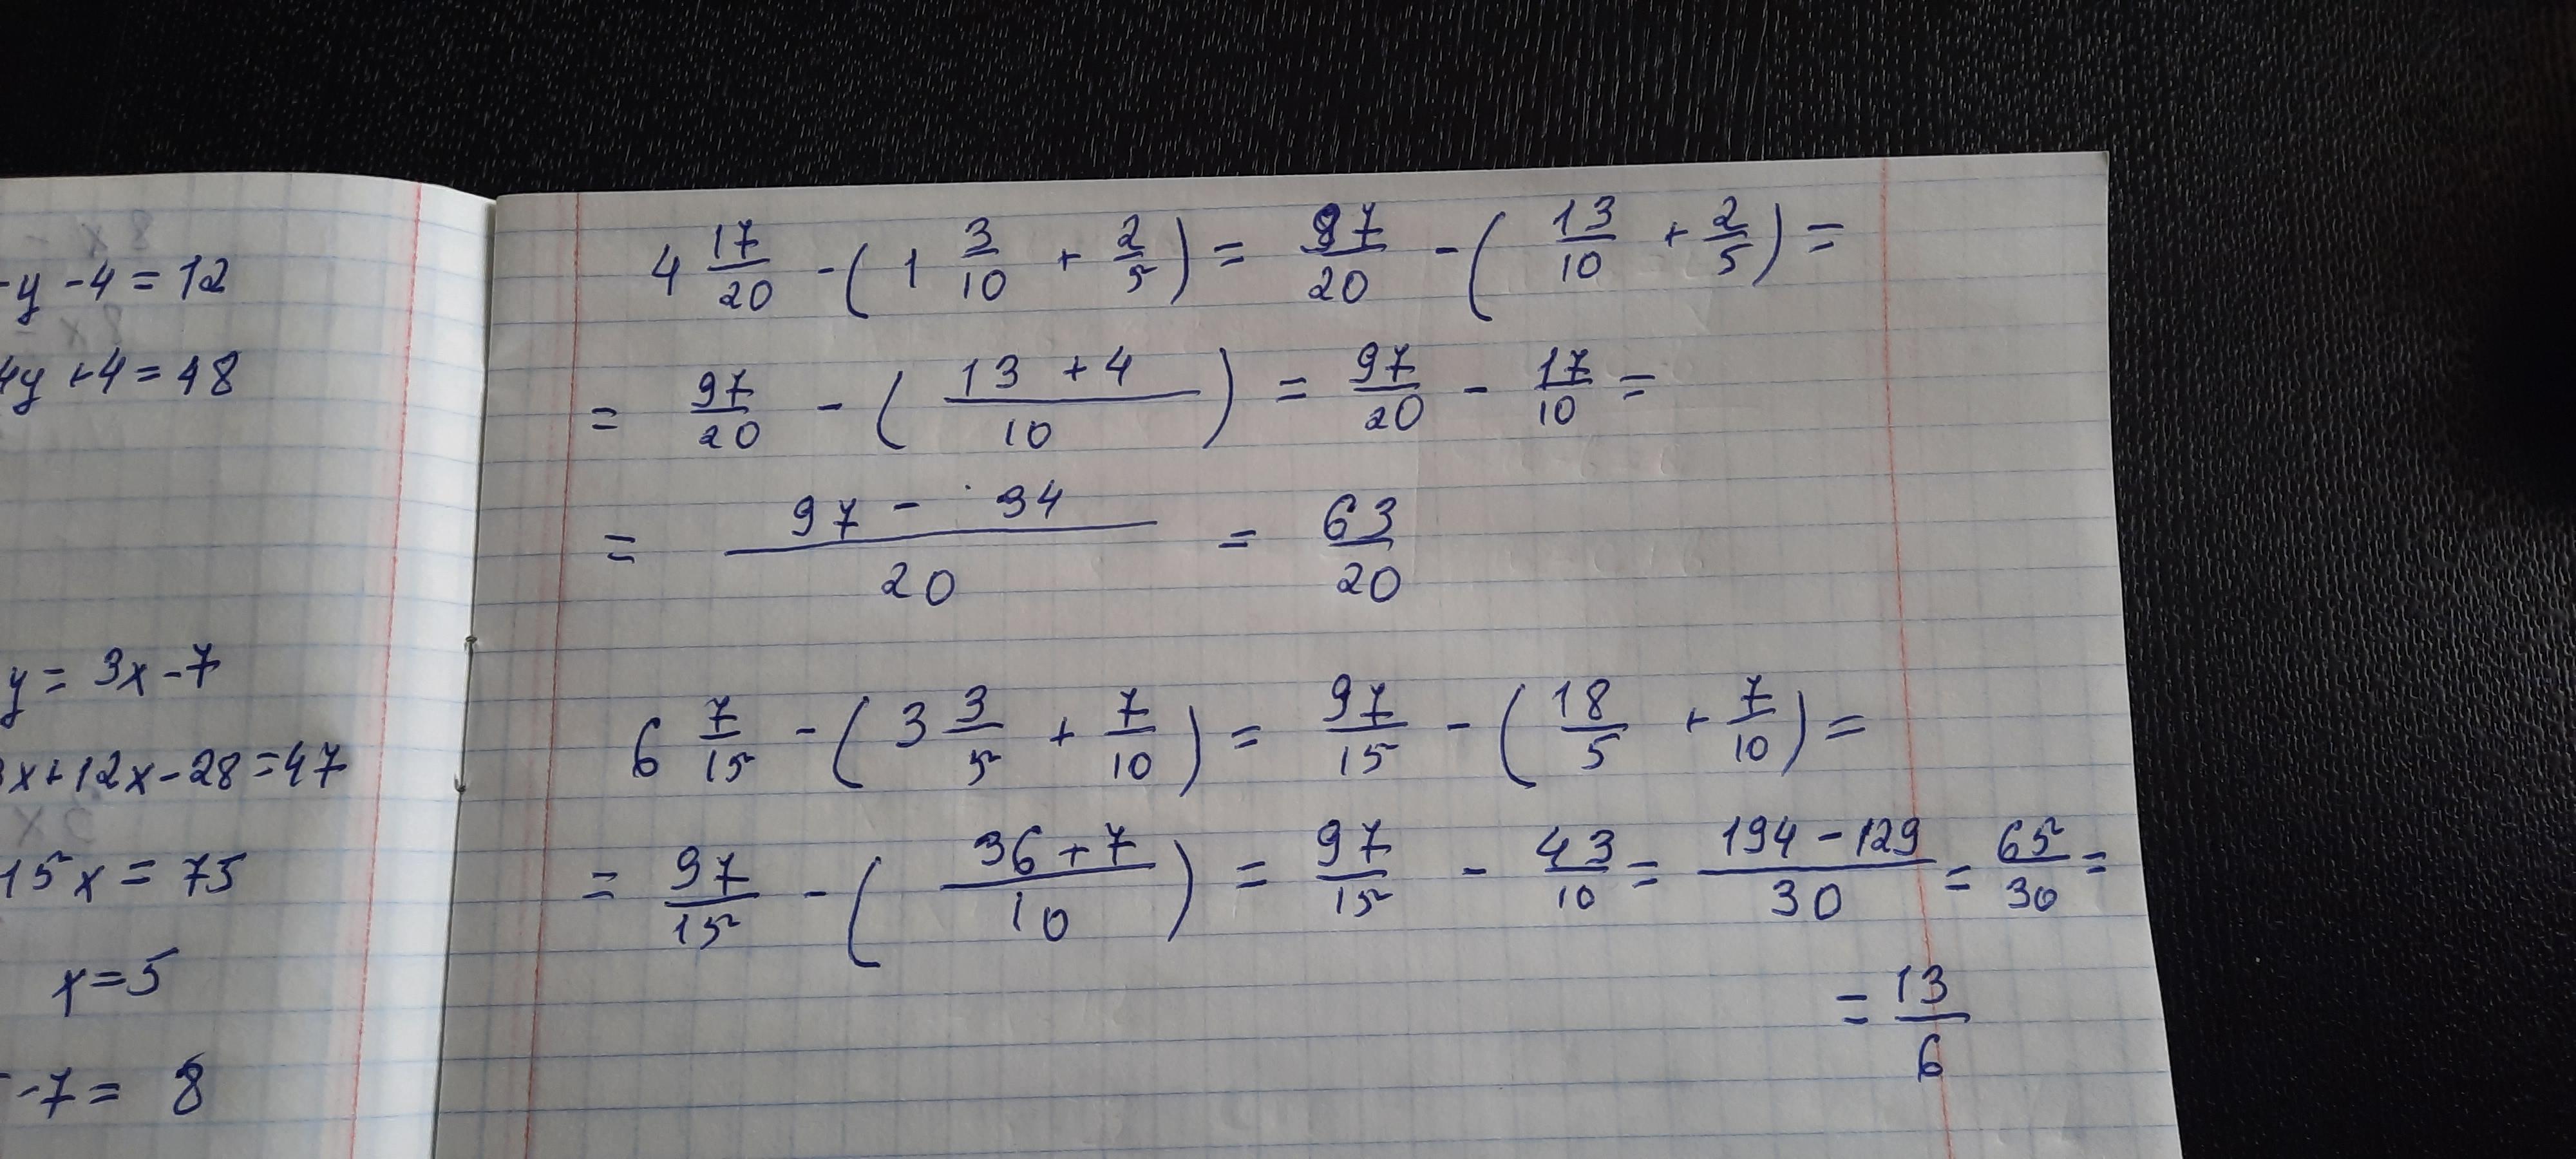 -y - 4 = 12
4y + 4 = 48
y = 3x - 7
3x + 12x - 28 = 47
15x = 75
x = 5
- 7 = 8
4 17/20 - (1 3/10 + 2/5) = 97/20 - (13/10 + 2/5) =
= 97/20 - ((13 + 4)/10) = 97/20 - 17/10 =
= (97 - 34)/20 = 63/20
6 7/15 - (3 3/5 + 7/10) = 97/15 - (18/5 + 7/10) =
= 97/15 - ((36 + 7)/10) = 97/15 - 43/10 = (194 - 129)/30 = 65/30 =
= 13/6